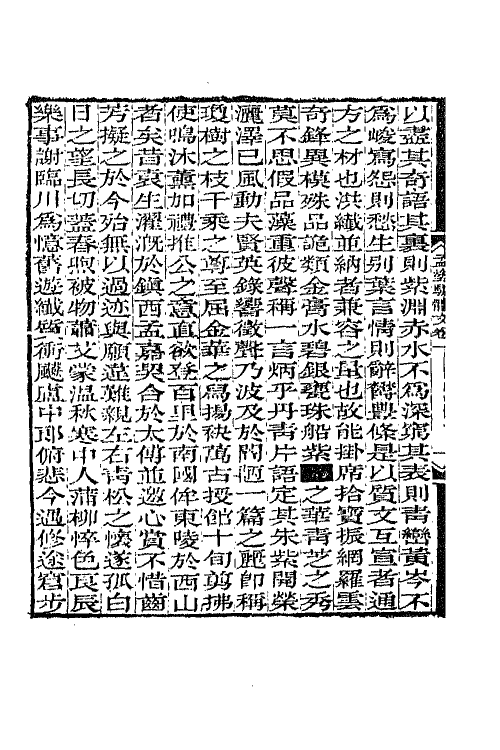 以盡其奇語其裏則紫淵赤水不爲深窮其表則靑巒黃岑不
爲峻寫怨則愁生別葉言情則辭欝豐條是以質文互宣者通
方之材也洪纖並納者兼容之量也故能掛席拾寶振網羅雲
奇鋒異模殊品詭類金膏水碧銀甕珠船紫之華靑芝之秀
莫不思假品藻重彼聲稱一言炳乎丹靑片語定其朱紫闓榮
灑澤已風動夫賢英錄響徵聲乃波及於閭巷一篇之麗卽稱
瓊樹之枝千乘之尊至屈金華之舄揚袂萬古授館十旬剪拂
使鳴沐薰加禮推公之意直欲登百里於南國侔東陵於西山
者矣昔袁生濯溉於鎭西孟嘉契合於太傅並邀心賞不惜齒
芳擬之於今殆無以過迹與願違難親左右靑松之懷遂孤白
日之華長切蓋春煦被物蕭艾蒙溫秋寒中人蒲柳悴色良辰
樂事謝臨川爲憶舊遊纖質衝飈盧中郞俯悲今遇修途窘步